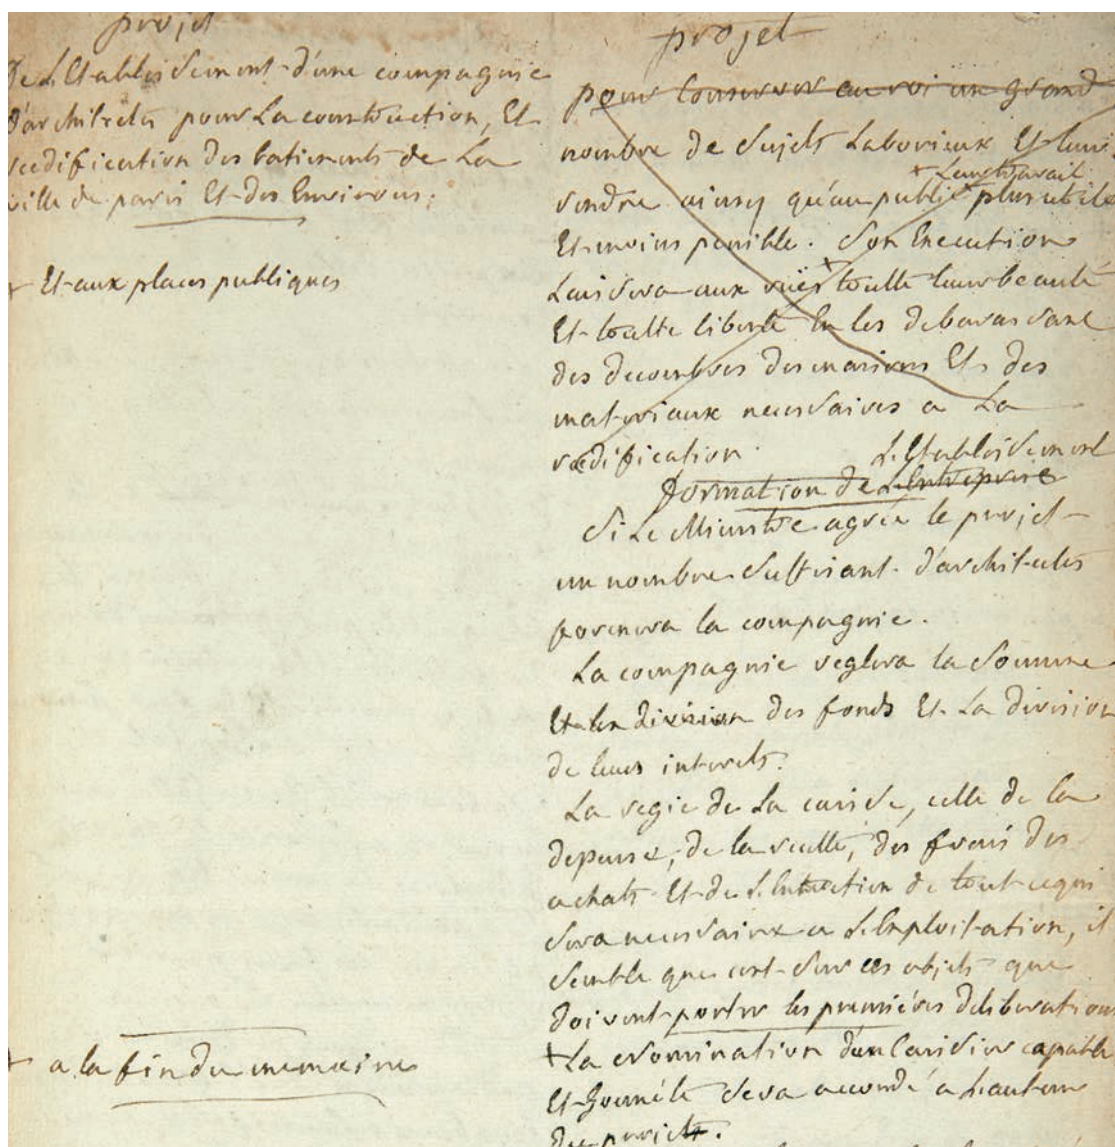 projet
De L'Etablissement d'une compagnie
d'architectes pour La construction, Et
reedification des batiments de La
ville de paris Et des Environs;
+ Et aux places publiques
+ a la fin du memoire
projet
pour Conserver au roi un grand
nombre de Sujets Laborieux Et leur
+ Leur travail
rendre ainsy qu'au public plus utile
Et moins penible. Son Execution
Laissera aux ruës toutte leur beauté
Et toutte liberté En les debarassant
des decombres des maisons Et des
materiaux necessaires a La
reedification.
L'Etablissement
formation de L'Entreprise
Si Le Ministre agrée le projet
un nombre Suffisant d'architectes
formera la compagnie.
La compagnie reglera la Somme
Et la division des fonds Et La division
de leurs interets.
La regie de La caisse, celle de la
depense, de la recette, des frais des
achats Et de L'Entretien de tout ce qui
Sera necessaire a L'Exploitation, il
Semble que c'est Sur ces objets que
doivent porter les premiéres deliberations
+ La nomination d'un Caissier capable
Et honnéte Sera accordé a L'auteur
du projet.